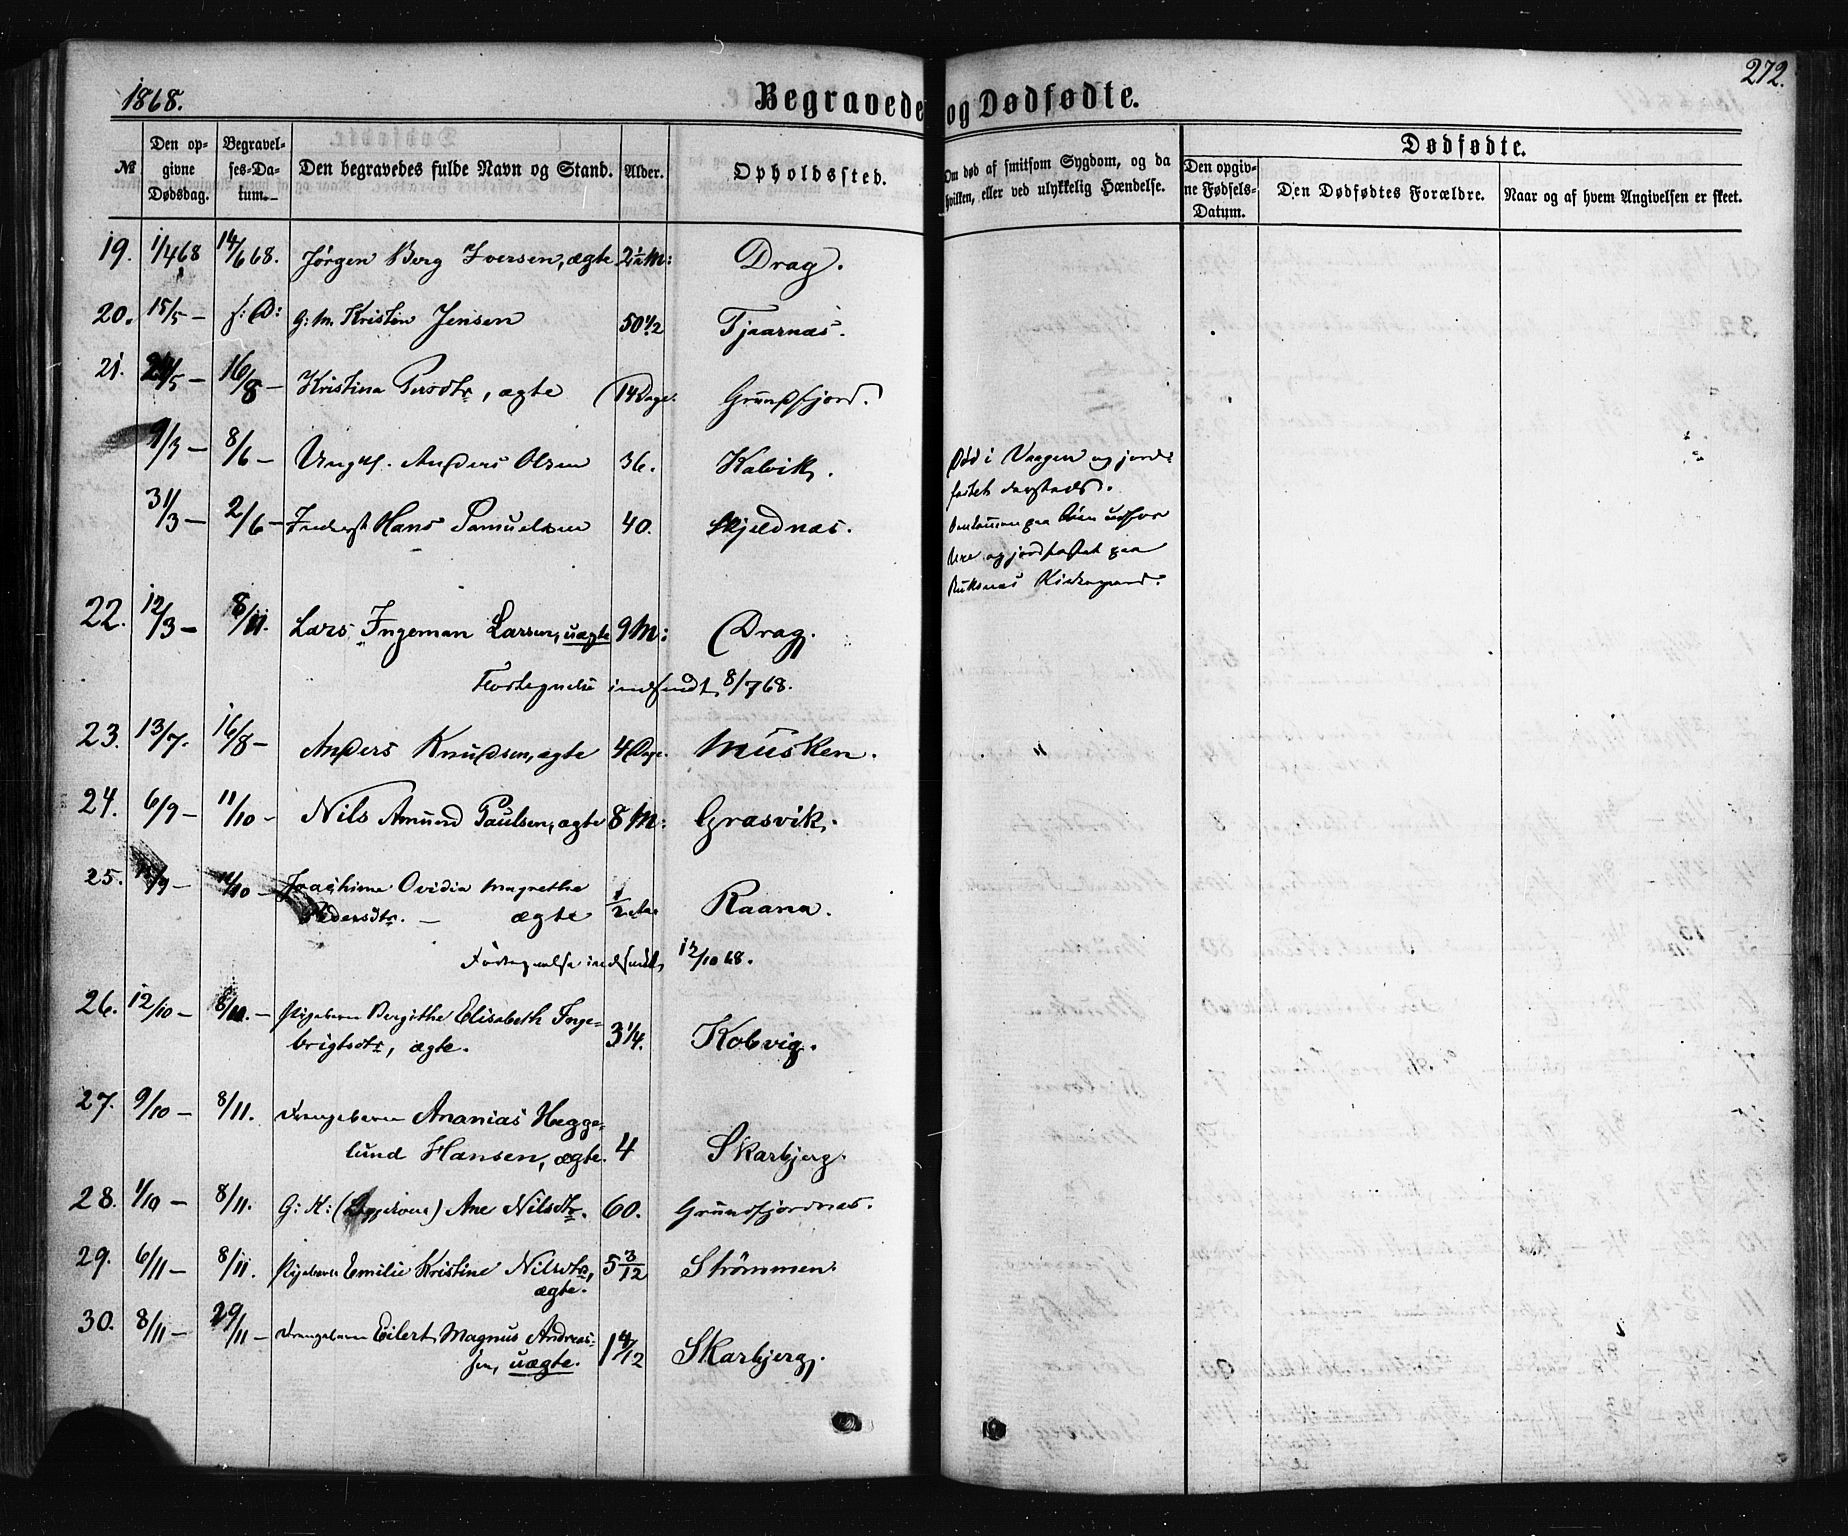 1868.
Begravede og Dødfødte.
272.
№
Den opgivne Dødsdag.
Begravelses-Datum.
Den begravedes fulde Navn og Stand.
Alder.
Opholdssted.
Om død af smitsom Sygdom, og da hvilken, eller ved ulykkelig Hændelse.
Dødfødte.
Den opgivne Fødsels-Datum.
Den Dødfødtes Forældre.
Naar og af hvem Angivelsen er skeet.
19. 1/4 68 14/6 68. Jørgen Berg Iversen, ægte 2½ M: Drag.
20. 15/5 – s: D: G: M. Kristen Jensen 50 1/2 Tjaarnæs.
21. /5 – 16/8 – Kristina Persdtr, ægte 14 Dage. Grundfjord.
9/3 – 8/6 – Ungk. Anders Olsen 36. Kalvik. Død i Vaagen og jord-
fæstet dersteds.
31/3 – 2/6 – Hans Samuelsen 40. Skjeldnæs. Omkommen paa Søen
og jordfæstet paa
Kirkegaard.
22. 12/3 – 8/11. Lars Ingeman Larsen, uægte 9 M: Drag.
Fortegnelse indsendt 8/7 68.
23. 13/7. 16/8 – Anders Knudsen, ægte 4 Dage. Musken.
24. 6/9 – 11/10 – Nils Amund Paulsen, ægte 8 M: Grasvik.
25. /9 – 11/10 – Joachime Ovidia Magrethe
Pedersdtr. – ægte 1/2 Raana.
Fortegnelse indsendt 12/10 68.
26. 12/10 – 8/11. – Pigebarn Bergithe Elisabeth Inge-
brigtsdtr, ægte. 3 1/4. Kobvig.
27. 9/10 – 8/11. Drengebarn Ananias Hegge-
lund Hansen, ægte. 4 Skarbjerg.
28. 1/10 – 8/11. G: K: () Ane Nilsdtr. 60. Grundfjordnæs.
29. 6/11 – 8/11. Pigebarn Emilie Kristine Nilsdtr, 5 3/12 Strømmen.
ægte.
30. 8/11 – 29/11 – Drengebarn Eilert Magnus Andreas-
sen, uægte. 1 4/12 Skarbjerg.